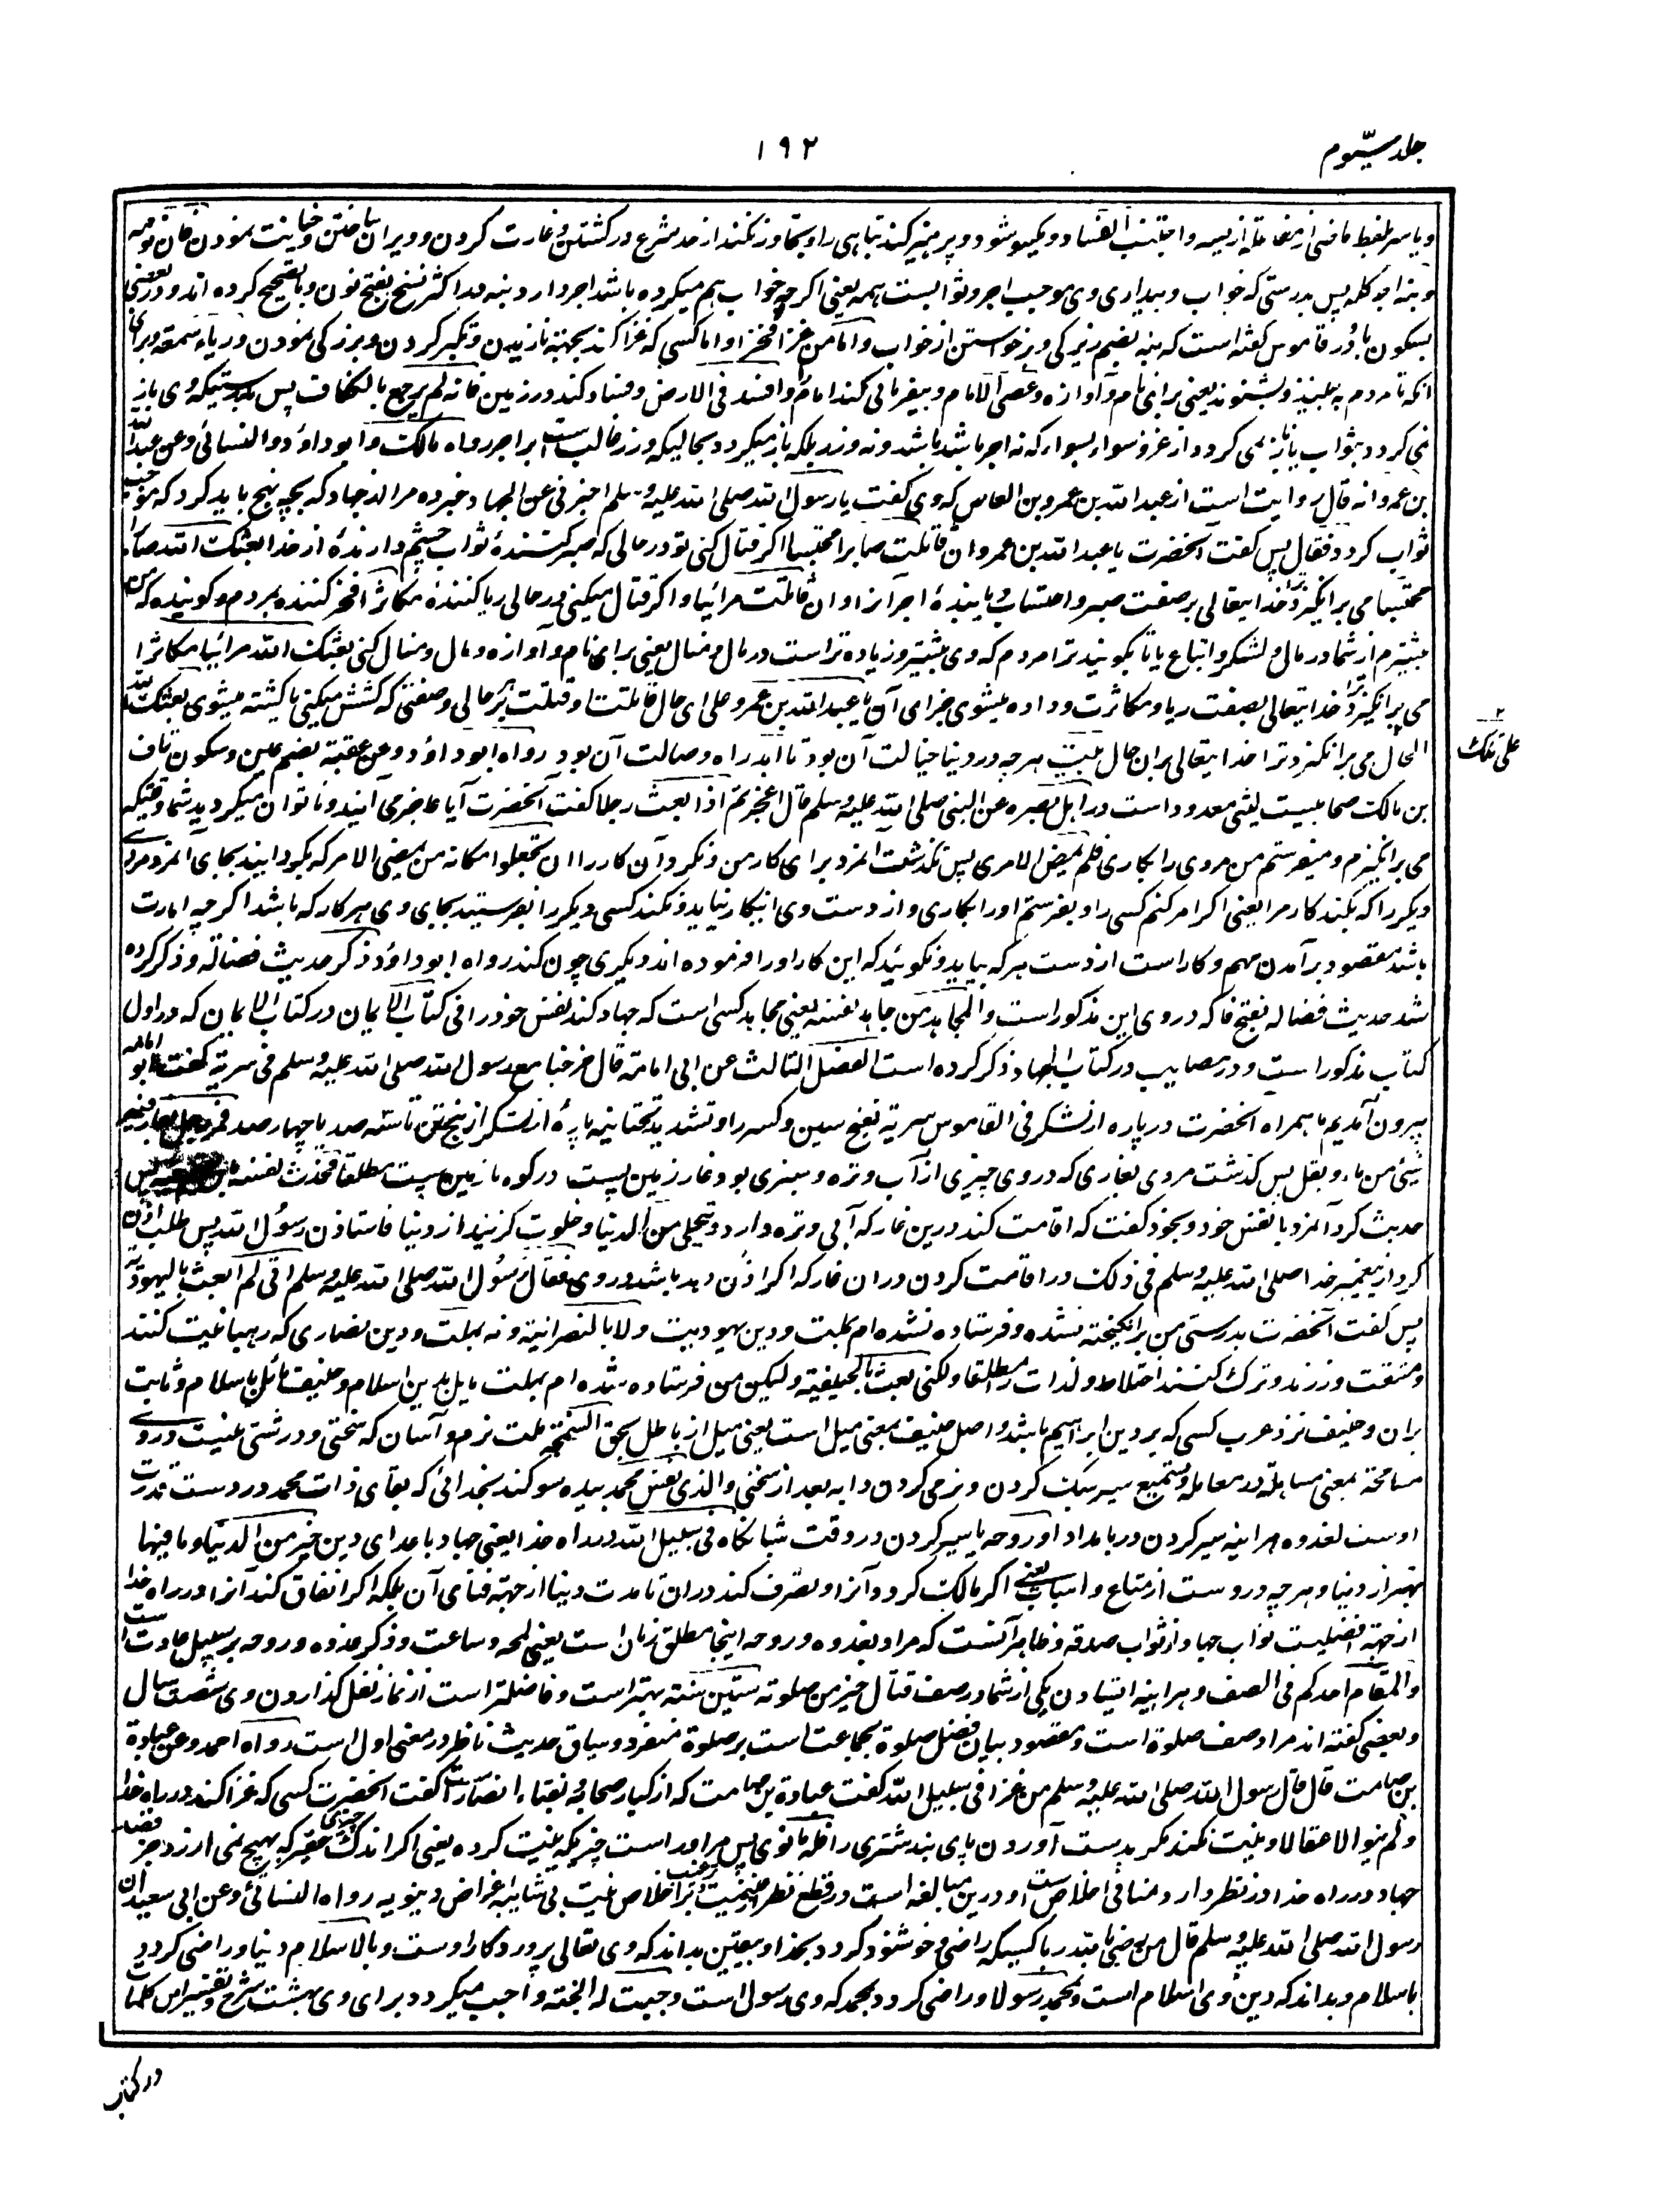 جلد سیّوم
۱۹۲
ویاسر بلفظ ماضی از مفاعله از یسر واجتنب الفساد ویکسو شود وپرهیز کند تباهی را وتجاوز نکند از حد شرع در کشتن وغارت کردن وویران ساختن وخیانت نمودن فان نومه
ونبهه اجر کله پس بدرستی که خواب وبیداری وی موجب اجر وثوابست همه یعنی اگرچه خواب هم میکرده باشد اجر دارد ونبه در اکثر نسخ بفتح نون وبا تصحیح کرده اند ودر بعضی
بسکون با ودر قاموس گفته است که نبه بضم زیرکی وبرخواستن از خواب واما من غزا فخرا واما کسی که غزا کند بجهته نازیدن وتکبر کردن وبزرگی نمودن وریاء وسمعة وبرای
آنکه تا مردم ببینند وبشنوند یعنی برای نام وآوازه وعصی الامام وبیفرمانی کند امام را وافسد فی الارض وفساد کند در زمین فانه لم یرجع بالکفاف پس بدرستیکه وی باز
نمی گردد بثواب یا باز نمی گردد از غزو سواء بسواء که نه اجر باشد باشد ونه وزر بلکه باز میگردد بحالیکه وزر غالب است بر اجر رواه مالک وابو داؤد والنسائی وعن عبد الله
بن عمرو انه قال روایت است از عبد الله بن عمرو بن العاص که وی گفت یا رسول الله صلی الله علیه وسلم اخبرنی عن الجهاد خبر ده مرا از جهاد که بچه نهج باید کرد که موجب
ثواب گردد فقال پس گفت آنحضرت یا عبد الله بن عمرو ان قاتلت صابرا محتسبا اگر قتال کنی تو در حالی که صبر کننده ثواب چشم دارنده از خدا بعثک الله صابرا
محتسبا می برانگیزد ترا خدایتعالی بر صفت صبر واحتساب ویابنده اجر آنرا وان قاتلت مرائیا واگر قتال میکنی در حالی ریا کننده مکاثرا فخر کننده بمردم وگوینده که من
بیشترم از شما در مال ولشکر واتباع یا تا بگویند ترا مردم که وی بیشتر وزیاده تر است در مال ومنال یعنی برای نام وآوازه ومال ومنال کنی بعثک الله مرائیا مکاثرا
می برانگیزد ترا خدایتعالی بصفت ریا ومکاثرت وداده میشوی جزای آن یا عبد الله بن عمرو علی ای حال قاتلت او قتلت بر هر حالی وصفتی که کشش میکنی یا کشته میشوی بعثک الله
علی تلک
الحال می برانگیزد ترا خدایتعالی بران حال نیت هر چه در دنیا خیالت آن بود تا ابد راه وصالت آن بود رواه ابو داؤد وعن عقبة بضم عین وسکون قاف
بن مالک صحابیست لیثی معدود است در اهل بصره عن النبی صلی الله علیه وسلم قال اعجزتم اذا بعثت رجلا گفت آنحضرت آیا عاجز می آئید وناتوان میگردید شما وقتیکه
می برانگیزم ومیفرستم من مردی را بکاری فلم یمض لامری پس نگذشت آنمرد برای کار من ونکرد آن کار را ان تجعلوا مکانه من یمضی لامر که بگردانید بجای آنمرد مردی
دیگر را که بکند کار مرا یعنی اگر امر کنم کسی را وبفرستم او را بکاری واز دست وی آنکار نیاید ونکند کسی دیگر را بفرستید بجای وی هر کار که باشد اگرچه امارت
باشد مقصود برآمدن مهم وکار است از دست هر که بیاید ونگوئید که این کار او را فرموده اند دیگری چون کند رواه ابو داؤد ذکر حدیث فضالة وذکر کرده
شد حدیث فضاله بفتح فا که در وی این مذکور است والمجاهد من جاهد نفسه یعنی مجاهد کسی است که جهاد کند نفس خود را فی کتاب الایمان در کتاب الایمان که در اول
کتاب مذکور است ودر مصابیح در کتاب الجهاد ذکر کرده است الفصل الثالث عن ابی امامة قال خرجنا مع رسول الله صلی الله علیه وسلم فی سریة گفت ابو امامه
بیرون آمدیم ما همراه آنحضرت در پاره از لشکر فی القاموس سریة بفتح سین وکسر را وتشدید تحتانیه پاره از لشکر از پنج تن تا سه صد یا چهار صد فمر رجل بغار فیه
شئ من ماء وبقل پس گذشت مردی بغاری که در وی چیزی از آب وتره وسبزی بود وغار زمین پست در کوه یا زمین پست مطلقا فحدث نفسه پس
حدیث کرد آنمرد با نفس خود وبخود گفت که اقامت کند درین غار که آبی وتره دارد ویتخلی من الدنیا وخلوت گزیند از دنیا فاستاذن رسول الله پس طلب اذن
کرد از پیغمبر خدا صلی الله علیه وسلم فی ذلک در اقامت کردن در ان غار که اگر اذن دهد باشد در وی فقال رسول الله صلی الله علیه وسلم انی لم ابعث بالیهودیة
پس گفت آنحضرت بدرستی من برانگیخته نشده وفرستاده نشده ام بملت ودین یهودیت ولا بالنصرانیة ونه بملت ودین نصاری که رهبانیت کنند
ومشقت ورزند وترک کنند اختلاط ولذات را مطلقا ولکنی بعثت بالحنیفیة ولیکن من فرستاده شده ام بملت مایل بدین اسلام وحنیف مائل باسلام وثابت
بران وحنیف نزد عرب کسی که بر دین ابراهیم باشد واصل حنیف بمعنی میل است یعنی میل از باطل بحق السمحة ملت نرم وآسان که سختی ودرشتی نیست در وی
مسامحة بمعنی مساهلة در معامله وتسمیح سیر سبک کردن ونرمی کردن دابه بعد از سختی والذی نفس محمد بیده سوگند بخدائی که بقای ذات محمد در دست قدرت
اوست لغدوه هر اینه سیر کردن در بامداد او روحة یا سیر کردن در وقت شبانگاه فی سبیل الله در راه خدا یعنی جهاد با اعدای دین خیر من الدنیا وما فیها
بهتر از دنیا وهر چه دروست از متاع واسباب یعنی اگر مالک گردد آنرا وتصرف کند دران تا مدت دنیا از جهة فنای آن بلکه اگر انفاق کند آنرا در راه خدا
از جهة افضلیت ثواب جهاد از ثواب صدقه وظاهر آنست که مراد بغدوه وروحه اینجا مطلق زمان است یعنی لمحه وساعت وذکر غدوه وروحه بر سبیل عادت است
والمقام احدکم فی الصف وهر اینه ایستادن یکی از شما در صف قتال خیر من صلوته ستین سنة بهتر است وفاضلتر است از نماز نفل گذارون وی شصت سال
وبعضی گفته اند مراد صف صلوة است ومقصود بیان فضل صلوة بجماعت است بر صلوة منفرد وسیاق حدیث ناظر در معنی اول است رواه احمد وعن عبادة
بن صامت قال قال رسول الله صلی الله علیه وسلم من غزا فی سبیل الله گفت عبادة بن صامت که از کبار صحابه ونقباء انصار است گفت آنحضرت کسی که غزا کند در راه خدا
ولم ینو الا عقالا ونیت نکند مگر بدست آوردن پای بند شتری را فله ما نوی پس مر اوراست چیزیکه نیت کرده یعنی اگر اندک چیزی حقیر که بهیچ نمی ارزد جز قصد
جهاد در راه خدا در نظر دارد منافی اخلاص است ودرین مبالغه است در قطع نظر از غنیمت وترغیب بر اخلاص نیت بی شایبه اغراض دنیویه رواه النسائی وعن ابی سعید ان
رسول الله صلی الله علیه وسلم قال من رضی بالله ربا کسیکه راضی وخوشنود گردد بخدا وبیقین بداند که وی تعالی پروردگار اوست وبالاسلام دینا وراضی گردد
باسلام وبداند که دین وی اسلام است وبمحمد رسولا وراضی گردد بمحمد که وی رسول است وجبت له الجنة واجب میگردد برای وی بهشت شرح وتفسیر این کلمات
در کتاب